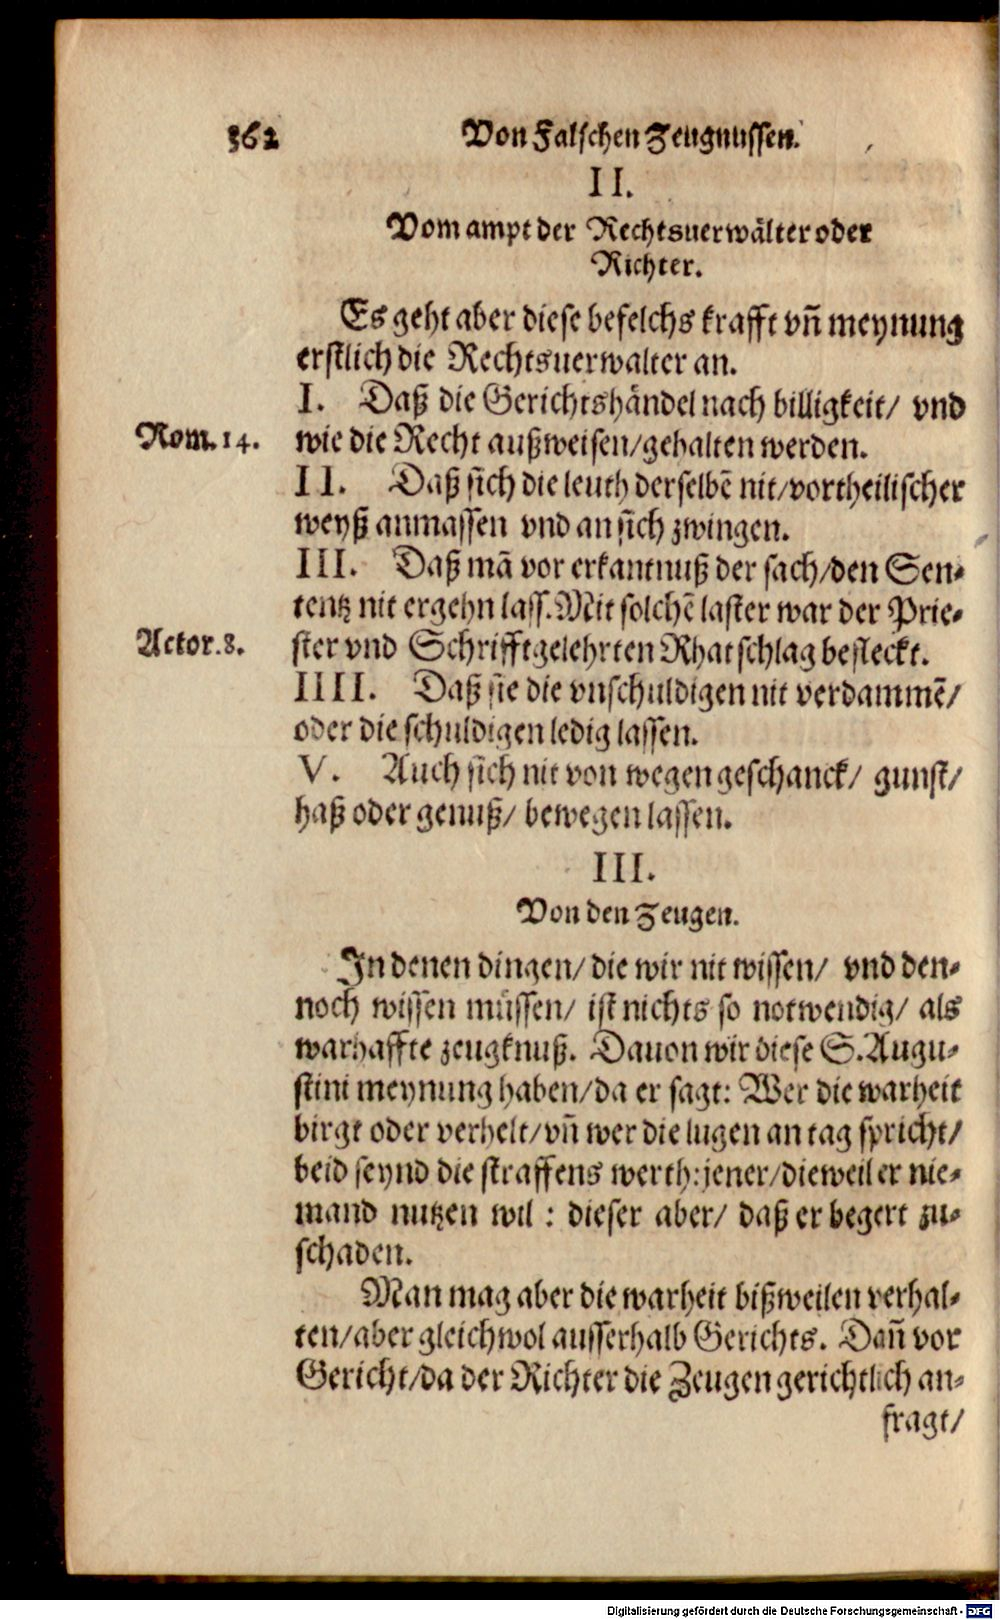 362 Von Falschen Zeugnussen.
II.
Vom ampt der Rechtsuerwälter oder
Richter.
Es geht aber diese befelchs krafft vñ meynung
erstlich die Rechtsuerwalter an.
I. Daß die Gerichtshändel nach billigkeit/ vnd
Rom. 14. wie die Recht außweisen/gehalten werden.
II. Daß sich die leuth derselbẽ nit/vortheilischer
weyß anmassen vnd an sich zwingen.
III. Daß mã vor erkantnuß der sach/den Sen-
tentz nit ergehn lass. Mit solchẽ laster war der Prie-
Actor. 8. ster vnd Schrifftgelehrten Rhatschlag befleckt.
IIII. Daß sie die vnschuldigen nit verdammẽ/
oder die schuldigen ledig lassen.
V. Auch sich nit von wegen geschanck/ gunst/
haß oder genuß/ bewegen lassen.
III.
Von den Zeugen.
In denen dingen/ die wir nit wissen/ vnd den-
noch wissen müssen/ ist nichts so notwendig/ als
warhaffte zeugknuß. Dauon wir diese S. Augu-
stini meynung haben/da er sagt: Wer die warheit
birgt oder verhelt/vñ wer die lugen an tag spricht/
beid seynd die straffens werth: jener/dieweil er nie-
mand nutzen wil : dieser aber/ daß er begert zu-
schaden.
Man mag aber die warheit bißweilen verhal-
ten/aber gleichwol ausserhalb Gerichts. Dañ vor
Gericht/da der Richter die Zeugen gerichtlich an-
fragt/
Digitalisierung gefördert durch die Deutsche Forschungsgemeinschaft - DFG